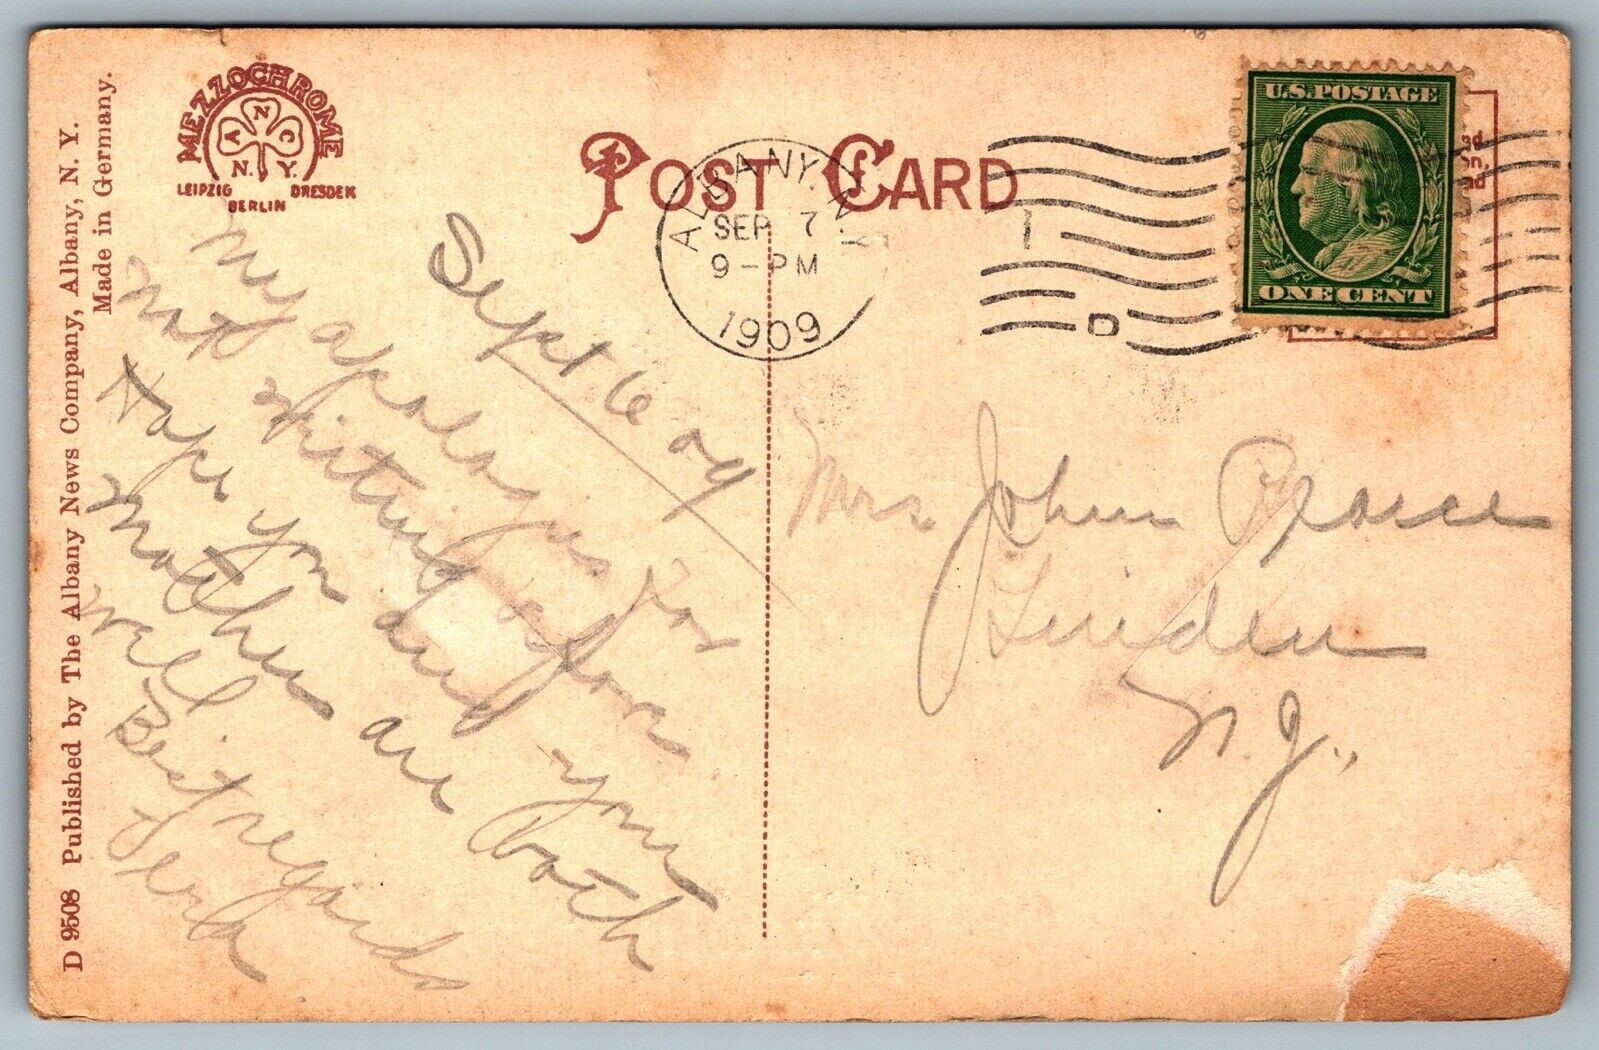 D 9508 Published by The Albany News Company, Albany, N. Y.
Made in Germany.
MEZZOCHROME
A N C
N. Y.
LEIPZIG DRESDEN
BERLIN
POST CARD
ALBANY, N.Y.
SEP 7
9-PM
1909
1
D
U.S. POSTAGE
ONE CENT
Sept 6 09
My apologies for
not writing before
Hope you and your
mother are both
well
Best regards
Mrs John Pearce
Linden
N. J.